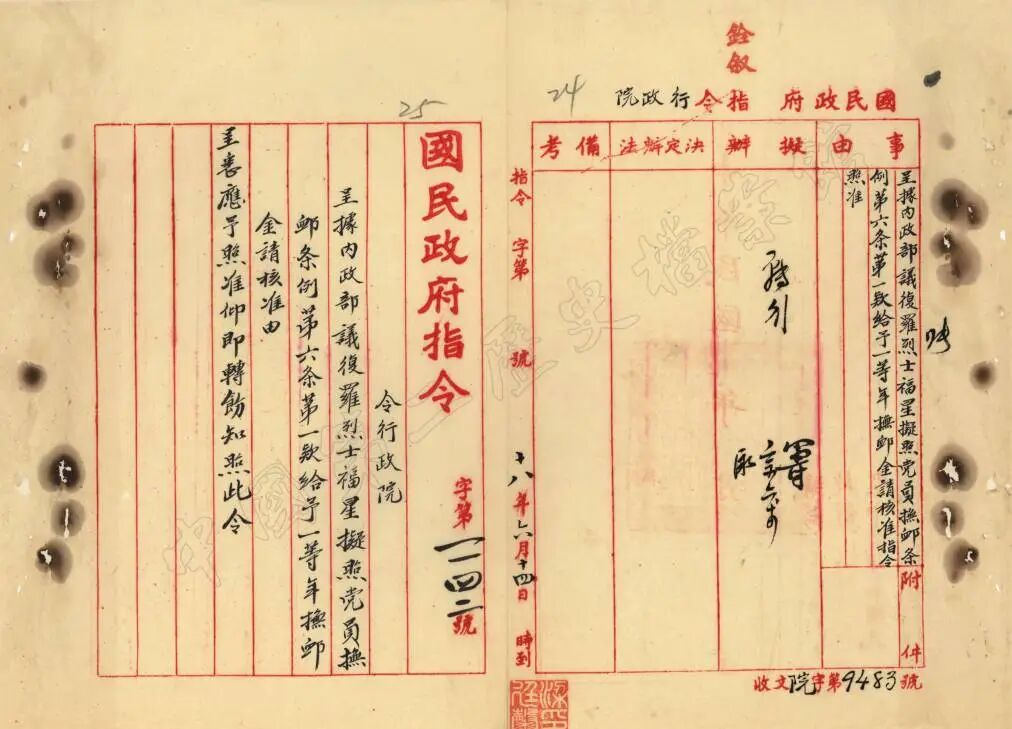 銓叙
國民政府指令行政院
24
事由
擬辦
決定辦法
備考
呈據内政部議復羅烈士福星擬照党員撫邺条
例第六条第一款給予一等年撫邺金請核准指令
照准
附件
收文院字第9483號
指令 字第 號 十八年六月十四日 時到
25
國民政府指令 字第一一四二號
令行政院
呈據内政部議復羅烈士福星擬照党員撫
邺条例第六条第一款給予一等年撫邺
金請核准由
呈悉應予照准仰即轉飭知照此令
中國第二歷史檔案館